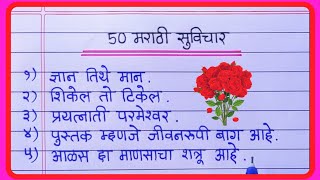 50 मराठी सुविचार
१) ज्ञान तिथे मान.
२) शिकेल तो टिकेल.
३) प्रयत्नाती परमेश्वर.
४) पुस्तक म्हणजे जीवनरुपी बाग आहे.
५) आळस हा माणसाचा शत्रू आहे.